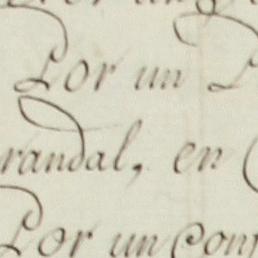 Por un
randal, en
Por un Con